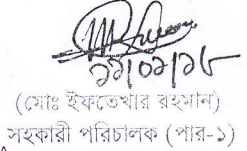 ১১/০১/১৮
(মোঃ ইফতেখার রহমান)
সহকারী পরিচালক (পার-১)